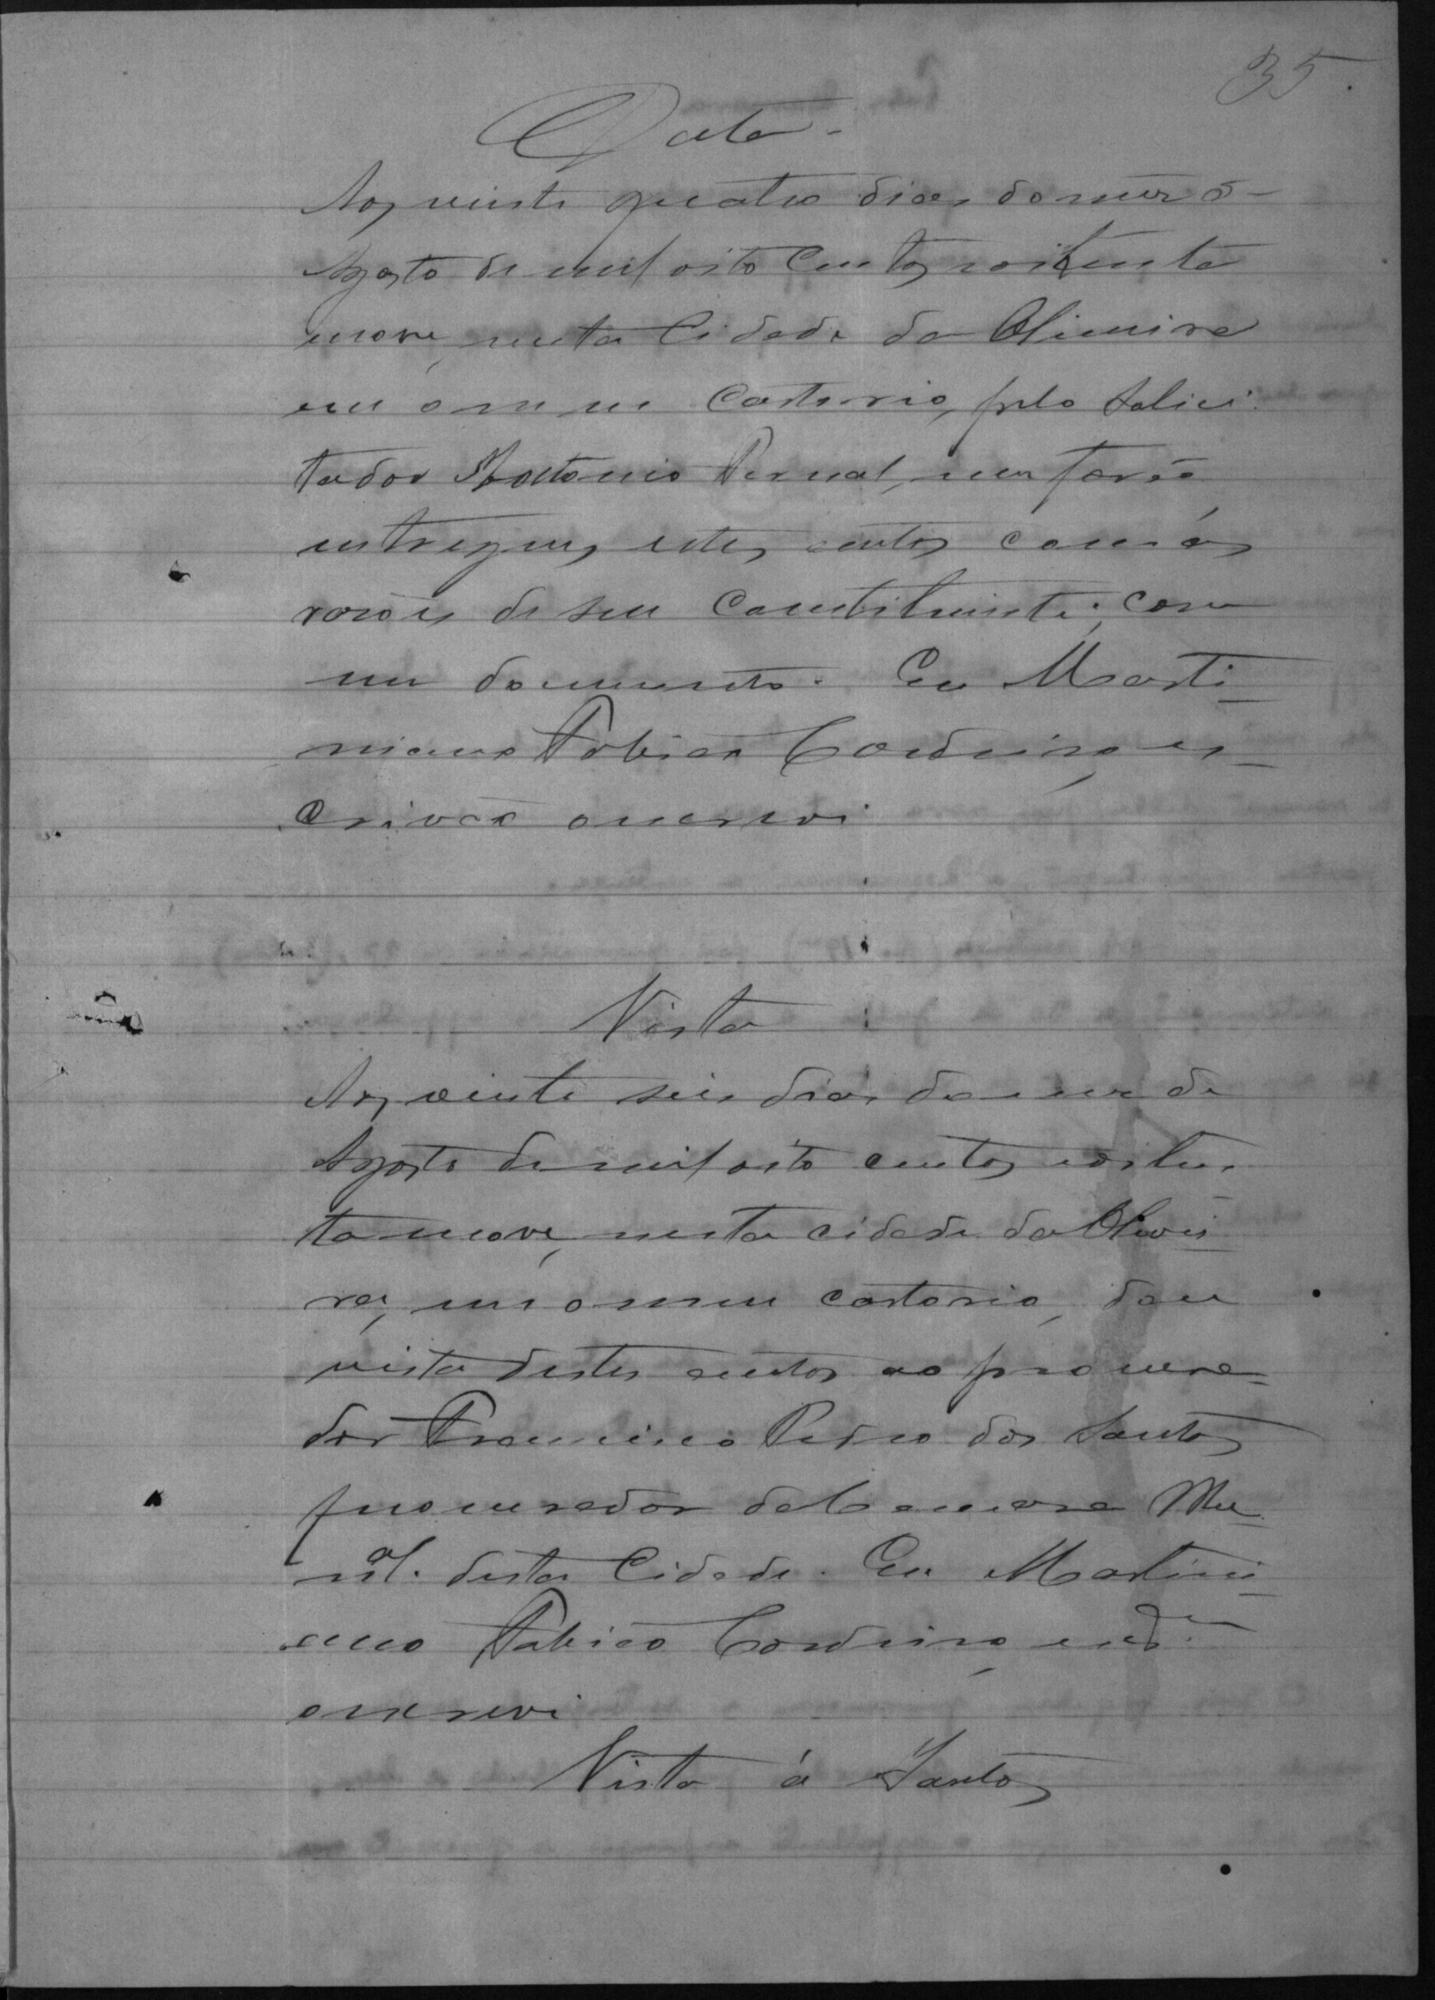 35.
Data.
Aos vinte quatro dias do mez d'
Agosto de mil oito centos noitenta
nove, nesta Cidade da Oliveira
em o meu Cartorio, pelo Solici
tador Antonio Bernal, me forão
entregues estes autos com as
rasões de seu Constituinte, com
um documento. Eu Marti
niano Tobias Cordeiro, es
crivão o escrevi
Vista
Aos vinte seis dias do mez de
Agosto de mil oito centos noiten
ta nove, nesta cidade da Olivei
ra, em o meu cartorio, dou
vista destes autos ao procura
dor Francisco Pedro dos Santos
procurador da Camara Mu
nal. desta Cidade. Eu Martini
ano Cordeiro
o escrevi
Vista á Santos